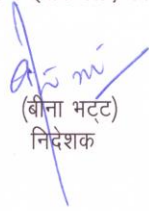 (बीना भट्ट)
निदेशक